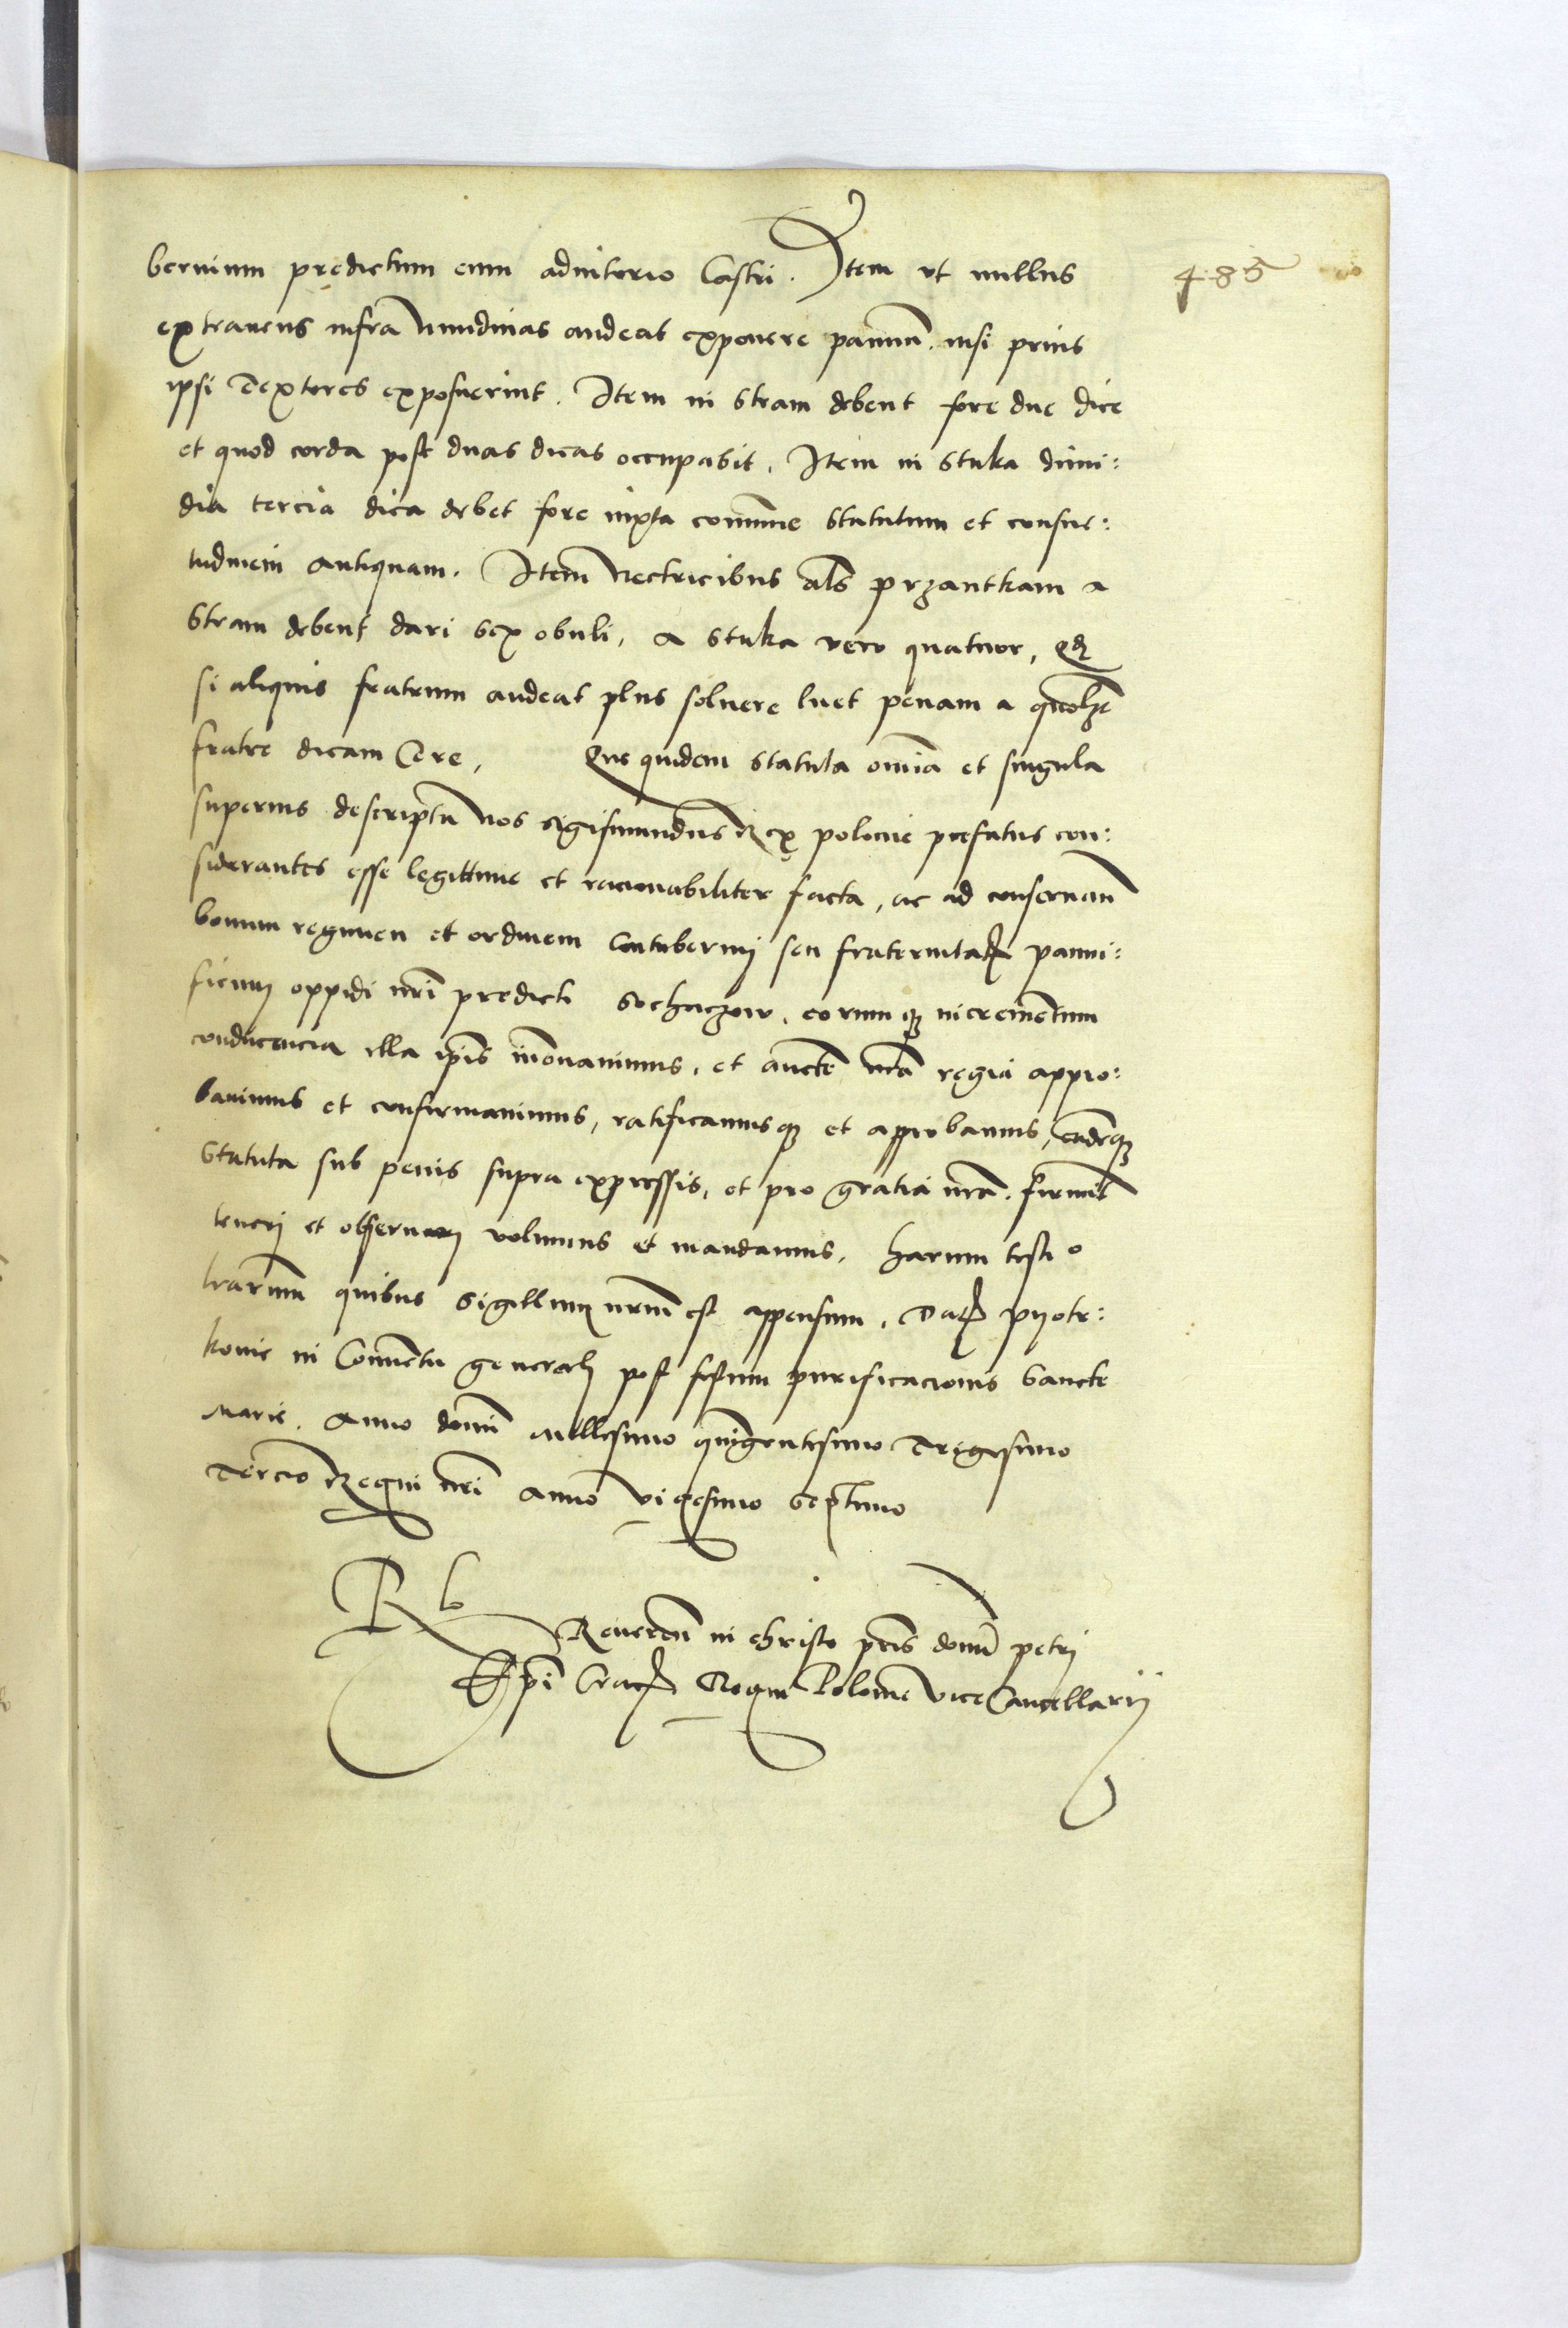 bernium predictum cum adiutorio Castri. Item ut nullus
485
extraneus infra nundinas audeat exponere pannum. nisi prius
ipsi Textores exposuerint. Item in stram debent fore due dice
et quod corda post duas dicas occupabit. Item in stuka dimi:
dia tercia dica debet fore iuxta commune statutum et consue:
tudinem antiquam. Item Nectricibus als przantkam a
stram debent dari sex obuli, a stuka vero quatuor, Qd
si aliquis fratrum audeat plus soluere luet penam a quolzt
fratre dicam Cere, Que quidem statuta omia et singula
superius descripta nos Sigismundus Rex polonie prefatus con:
siderantes esse legittime et racionabiliter facta, ac ad conseruan
bonum regimen et ordinem Contubernij seu fraternitatis panni:
ficum oppidi nri predicti Sochaczow, eorumq incrementum
conducencia illa ipis innouauimus, et aucte nra regia appro:
bauimus et confirmauimus, ratificamusq et approbamus, eademq
Statuta sub penis supra expressis, et pro gratia nra. firmit
teneri et obseruari volumus et mandamus. harum testio
lrarum quibus Sigillum nrum est appensum. Dat pyotr:
kouie in Conuentu generali post festum purificacionis Sancte
Marie. Anno domi Millesimo quingentesimo Trigesimo
Tercio Regni nri anno vigesimo septimo
Rlo
Reuerem in christo pris domi petri
Epi Crac Regni Polonie viceCancellarij